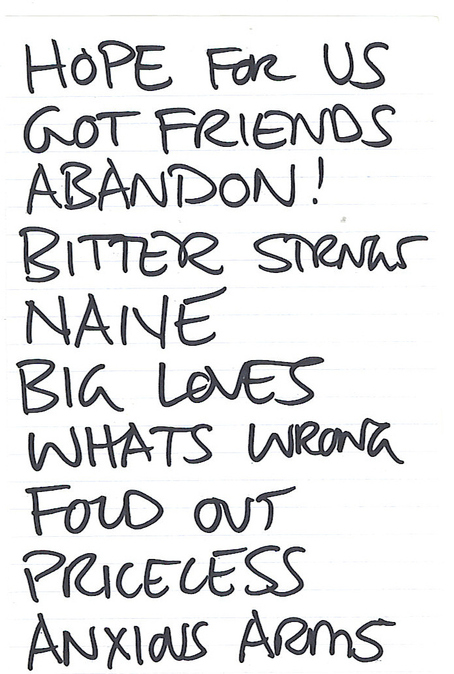 HOPE FOR US
GOT FRIENDS
ABANDON!
BITTER STRNGS
NAIVE
BIG LOVES
WHATS WRONG
FOLD OUT
PRICELESS
ANXIOUS ARMS